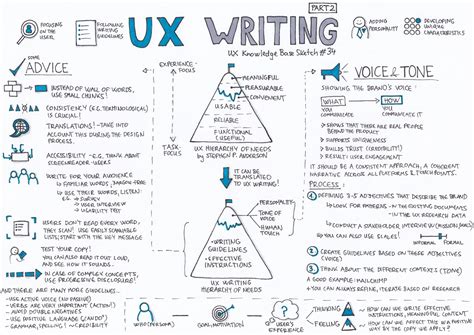 PART 2
UX WRITING
UX KNOWLEDGE BASE SKETCH #34
FOCUSING
ON THE
USER
FOLLOWING
WRITING
GUIDELINES
ADDING
PERSONALITY
DEVELOPING
UNIQUE
CHARACTERISTICS
SOME
ADVICE
INSTEAD OF WALL OF WORDS,
USE SMALL CHUNKS!
CONSISTENCY (E.G. TERMINOLOGICAL)
IS CRUCIAL!
TRANSLATIONS! - TAKE INTO
ACCOUNT THIS DURING THE DESIGN
PROCESS
ACCESSIBILITY - E.G. THINK ABOUT
SCREENREADER USERS
WRITE FOR YOUR AUDIENCE
FAMILIAR WORDS, JARGON-FREE
→ USE THEIR LANGUAGE
→ SURVEY
→ INTERVIEW
→ USABILITY TEST
USERS DON'T READ EVERY WORD,
THEY SCAN! USE EASILY SCANNABLE
LISTS, START WITH THE KEY MESSAGE
TEST YOUR COPY!
YOU CAN ALSO READ IT OUT
LOUD, AND LISTEN TO HOW
IT SOUNDS
IN CASE OF COMPLEX CONCEPTS,
USE PROGRESSIVE DISCLOSURE!
AND THERE ARE MANY MORE GUIDELINES:
- USE ACTIVE VOICE (NO PASSIVE)
- VERBS ARE VERY IMPORTANT (ACTION!)
- AVOID DOUBLE NEGATIVES
- USE POSITIVE LANGUAGE (CAN DO)
- GRAMMAR, SPELLING! → CREDIBILITY
EXPERIENCE-
FOCUS
TASK-
FOCUS
MEANINGFUL
PLEASURABLE
CONVENIENT
USABLE
RELIABLE
FUNCTIONAL
(USEFUL)
UX HIERARCHY OF NEEDS
BY STEPHEN P. ANDERSON
IT CAN BE
TRANSLATED
TO UX WRITING!
PERSONALITY
TONE OF
VOICE
HUMAN
TOUCH
- WRITING
GUIDELINES
- EFFECTIVE
INSTRUCTIONS
UX WRITING
HIERARCHY OF NEEDS
VOICE & TONE
SHOWING THE BRAND'S VOICE
WHAT
YOU
COMMUNICATE
HOW
YOU
COMMUNICATE
→ SHOWS THAT THERE ARE REAL PEOPLE
BEHIND THE BRAND/PRODUCT
→ SUPPORTS UNIQUENESS
→ BUILDS TRUST (CREDIBILITY!)
→ RESULT: USER ENGAGEMENT
IT SHOULD BE A CONSISTENT APPROACH, A COHERENT
NARRATIVE ACROSS ALL PLATFORMS & TOUCHPOINTS.
PROCESS:
1 DEFINING 3-5 ADJECTIVES THAT DESCRIBE THE BRAND
→ LOOK FOR PATTERNS - IN THE EXISTING DOCUMENTS
- IN THE UX RESEARCH DATA
→ CONDUCT A STAKEHOLDER INTERVIEW (MISSION, GOALS)
→ YOU CAN ALSO USE SCALES!
INFORMAL
FORMAL
2 CREATE GUIDELINES BASED ON THESE ADJECTIVES
(VOICE)
3 THINK ABOUT THE DIFFERENT CONTEXTS (TONE)
A GOOD EXAMPLE: MAILCHIMP
+ YOU CAN ALWAYS REFINE, ITERATE BASED ON RESEARCH
WHO (PERSONA)
GOAL, MOTIVATION
USER'S
EXPERIENCE
THINKING
FEELING
DOING
HOW CAN WE WRITE EFFECTIVE
INSTRUCTIONS, MEANINGFUL CONTENT?
WHAT ARE THE WAYS THAT WE CAN